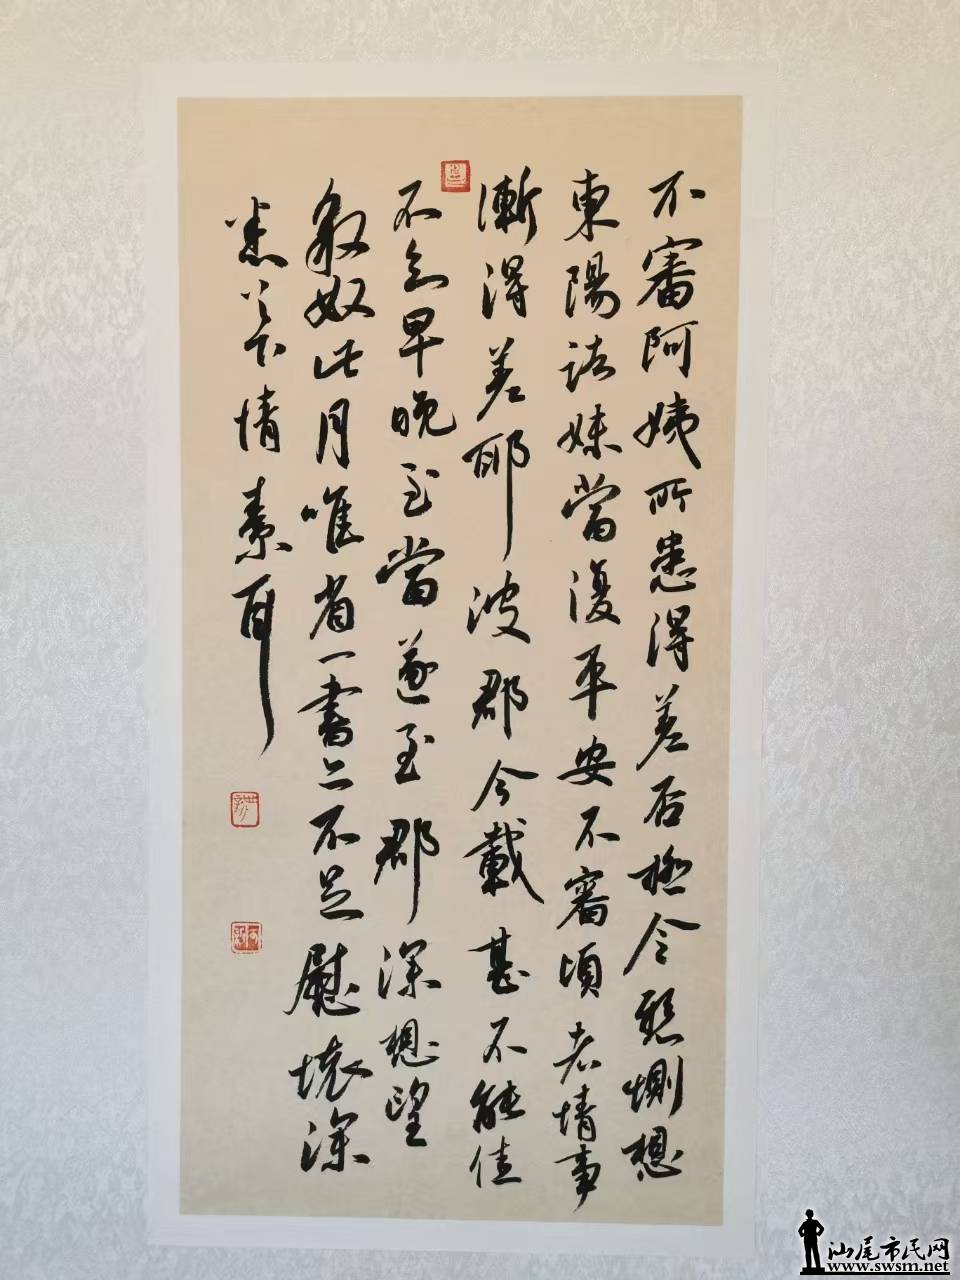 不審阿姨所患得差否極令懸惻想
東陽諸妹當復平安不審頃者情事
漸得差耶彼郡今載甚不能佳
不知早晚至當遂至郡深想望
敬奴此月唯省一書亦不足慰懷深
悉足下情素耳
汕尾市民网
www.swsm.net